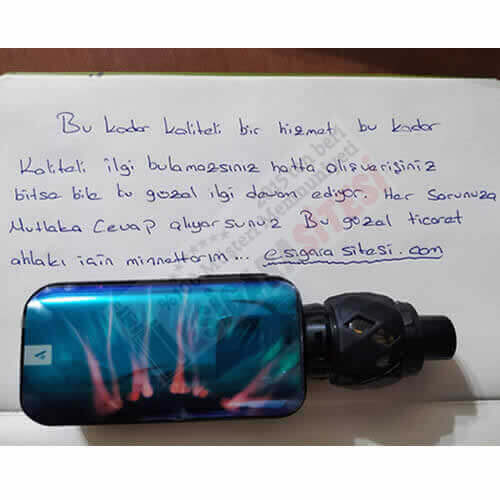 Bu kadar kaliteli bir hizmet bu kadar
Kaliteli ilgi bulamazsınız hatta alışverişiniz
bitse bile bu güzal ilgi devam ediyor. Her sorunuza
Mutlaka Cevap alıyorsunuz Bu güzal ticaret
ahlakı için minnettarım... esigara sitesi.com